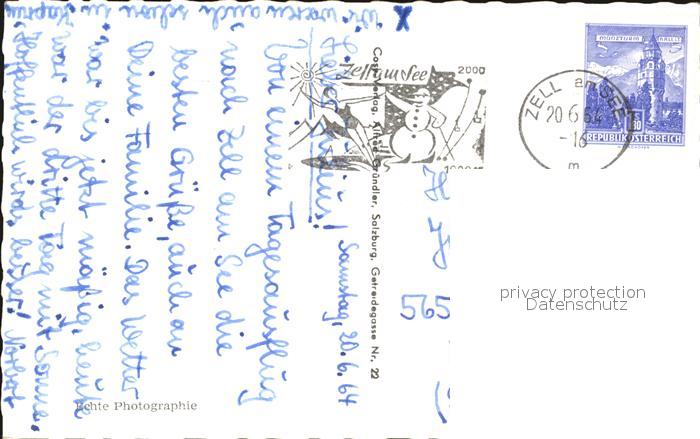 Samstag, 20.6.64
Lieber
Von einem Tagesausflug
nach Zell am See die
besten Grüße, auch an
Deine Familie. Das Wetter
war bis jetzt mäßig, heute
war der dritte Tag mit Sonne.
Hoffentlich wird's besser!
X Wir waren auch schon in Kaprun
Cosy-Verlag, Alfred Gründler, Salzburg, Getreidegasse Nr. 22
Echte Photographie
Zell am See
2000
ZELL am SEE
20.6.64
-16
m
MÜNZTURM HALL I. T.
S
REPUBLIK ÖSTERREICH
565
privacy protection
Datenschutz